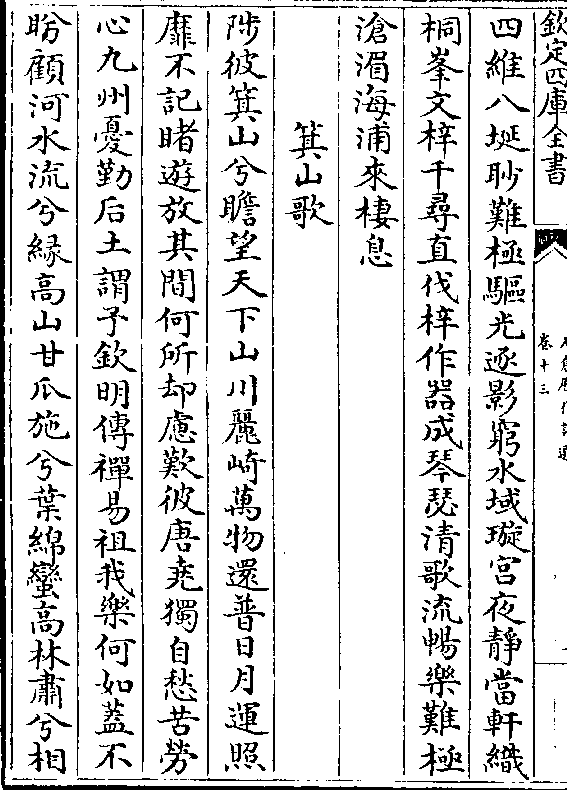 欽定四庫全書
卷十三
四維八埏眇難極驅光逐影窮水域璇宮夜靜當軒織
桐峯文梓千尋直伐梓作器成琴瑟清歌流暢樂難極
滄湄海浦來棲息
箕山歌
陟彼箕山兮瞻望天下山川麗崎萬物還普日月運照
靡不記睹遊放其間何所却慮歎彼唐堯獨自愁苦勞
心九州憂勤后土謂予欽明傳禪易祖我樂何如蓋不
盼顧河水流兮緣高山甘瓜施兮葉綿蠻高林肅兮相